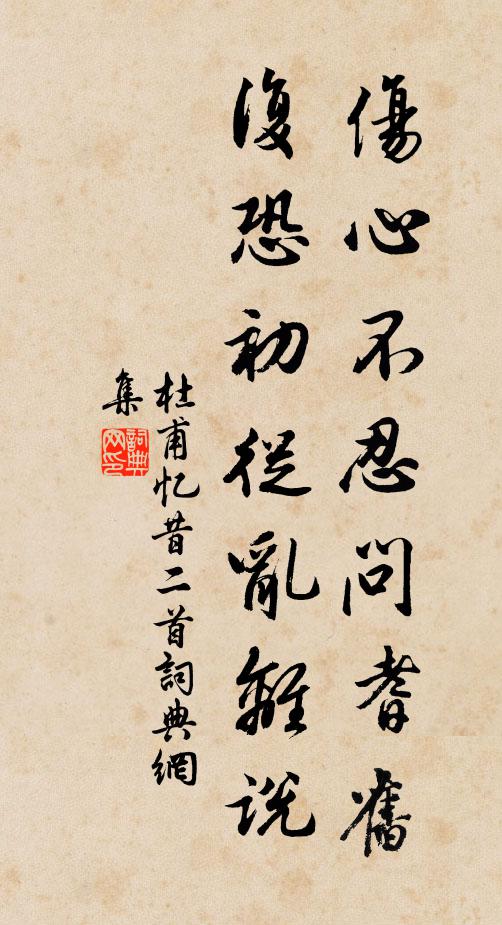 傷心不忍問耆舊
復恐初從亂離說
杜甫忆昔二首詞典網
集
詞典網印